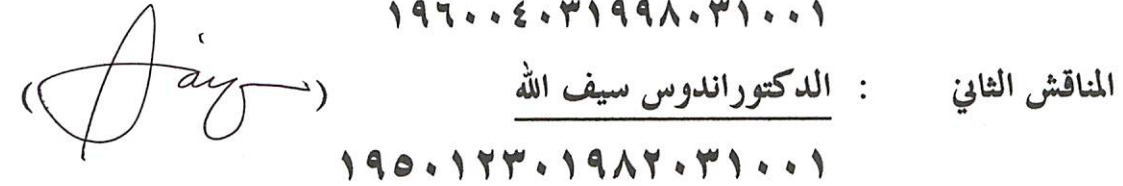 ١٩٦٠٠٤٠٣١٩٩٨٠٣١٠٠١
المناقش الثاني : الدكتوراندوس سيف الله ( )
١٩٥٠١٢٣٠١٩٨٢٠٣١٠٠١